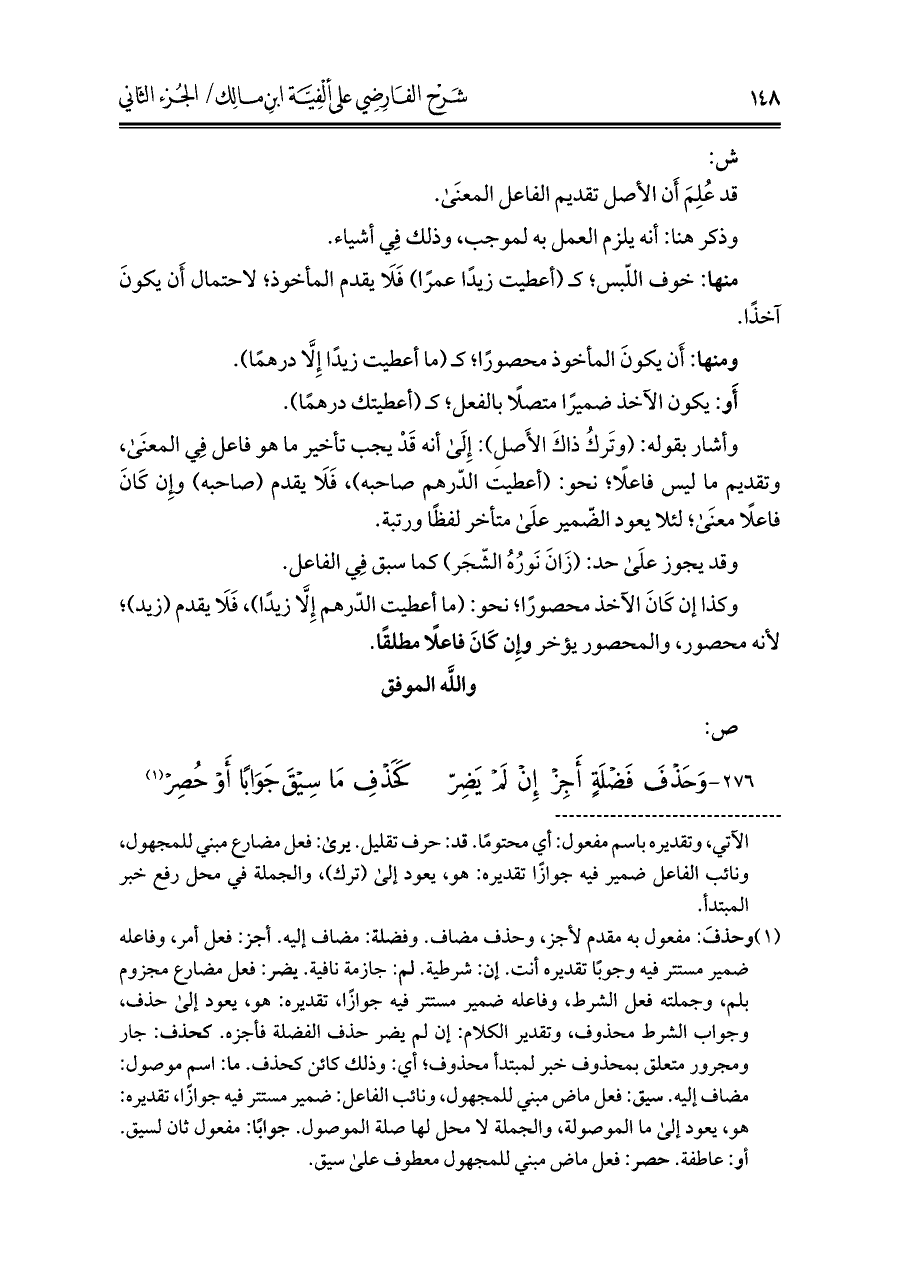 ١٤٨ شَرْح الفَارِضِي على أَلْفِيَّة ابنِ مالِك/ الجُزء الثاني
ش:
قد عُلِمَ أَن الأصل تقديم الفاعل المعنَىٰ.
وذكر هنا: أنه يلزم العمل به لموجب، وذلك فِي أشياء.
منها: خوف اللّبس؛ كـ (أعطيت زيدًا عمرًا) فَلَا يقدم المأخوذ؛ لاحتمال أَن يكونَ
آخذًا.
ومنها: أَن يكونَ المأخوذ محصورًا؛ كـ (ما أعطيت زيدًا إِلَّا درهمًا).
أَو: يكون الآخذ ضميرًا متصلًا بالفعل؛ كـ (أعطيتك درهمًا).
وأشار بقوله: (وتَركُ ذاكَ الأَصلِ): إِلَىٰ أنه قَدْ يجب تأخير ما هو فاعل فِي المعنَىٰ،
وتقديم ما ليس فاعلًا؛ نحو: (أعطيتَ الدّرهم صاحبه)، فَلَا يقدم (صاحبه) وإِن كَانَ
فاعلًا معنَىٰ؛ لئلا يعود الضّمير علَىٰ متأخر لفظًا ورتبة.
وقد يجوز علَىٰ حد: (زَانَ نَورُهُ الشّجَر) كما سبق فِي الفاعل.
وكذا إن كَانَ الآخذ محصورًا؛ نحو: (ما أعطيت الدّرهم إِلَّا زيدًا)، فَلَا يقدم (زيد)؛
لأنه محصور، والمحصور يؤخر وإِن كَانَ فاعلًا مطلقًا.
واللَّه الموفق
ص:
٢٧٦-وَحَذْفَ فَضْلَةٍ أَجِزْ إِنْ لَمْ يَضِرّ كَحَذْفِ مَا سِيْقَ جَوَابًا أَوْ حُصِرْ(١)
الآتي، وتقديره باسم مفعول: أي محتومًا. قد: حرف تقليل. يرىٰ: فعل مضارع مبني للمجهول،
ونائب الفاعل ضمير فيه جوازًا تقديره: هو، يعود إلىٰ (ترك)، والجملة في محل رفع خبر
المبتدأ.
(١)وحذفَ: مفعول به مقدم لأجز، وحذف مضاف. وفضلة: مضاف إليه. أجز: فعل أمر، وفاعله
ضمير مستتر فيه وجوبًا تقديره أنت. إن: شرطية. لم: جازمة نافية. يضر: فعل مضارع مجزوم
بلم، وجملته فعل الشرط، وفاعله ضمير مستتر فيه جوازًا، تقديره: هو، يعود إلىٰ حذف،
وجواب الشرط محذوف، وتقدير الكلام: إن لم يضر حذف الفضلة فأجزه. كحذف: جار
ومجرور متعلق بمحذوف خبر لمبتدأ محذوف؛ أي: وذلك كائن كحذف. ما: اسم موصول:
مضاف إليه. سيق: فعل ماض مبني للمجهول، ونائب الفاعل: ضمير مستتر فيه جوازًا، تقديره:
هو، يعود إلىٰ ما الموصولة، والجملة لا محل لها صلة الموصول. جوابًا: مفعول ثان لسيق.
أو: عاطفة. حصر: فعل ماض مبني للمجهول معطوف علىٰ سيق.